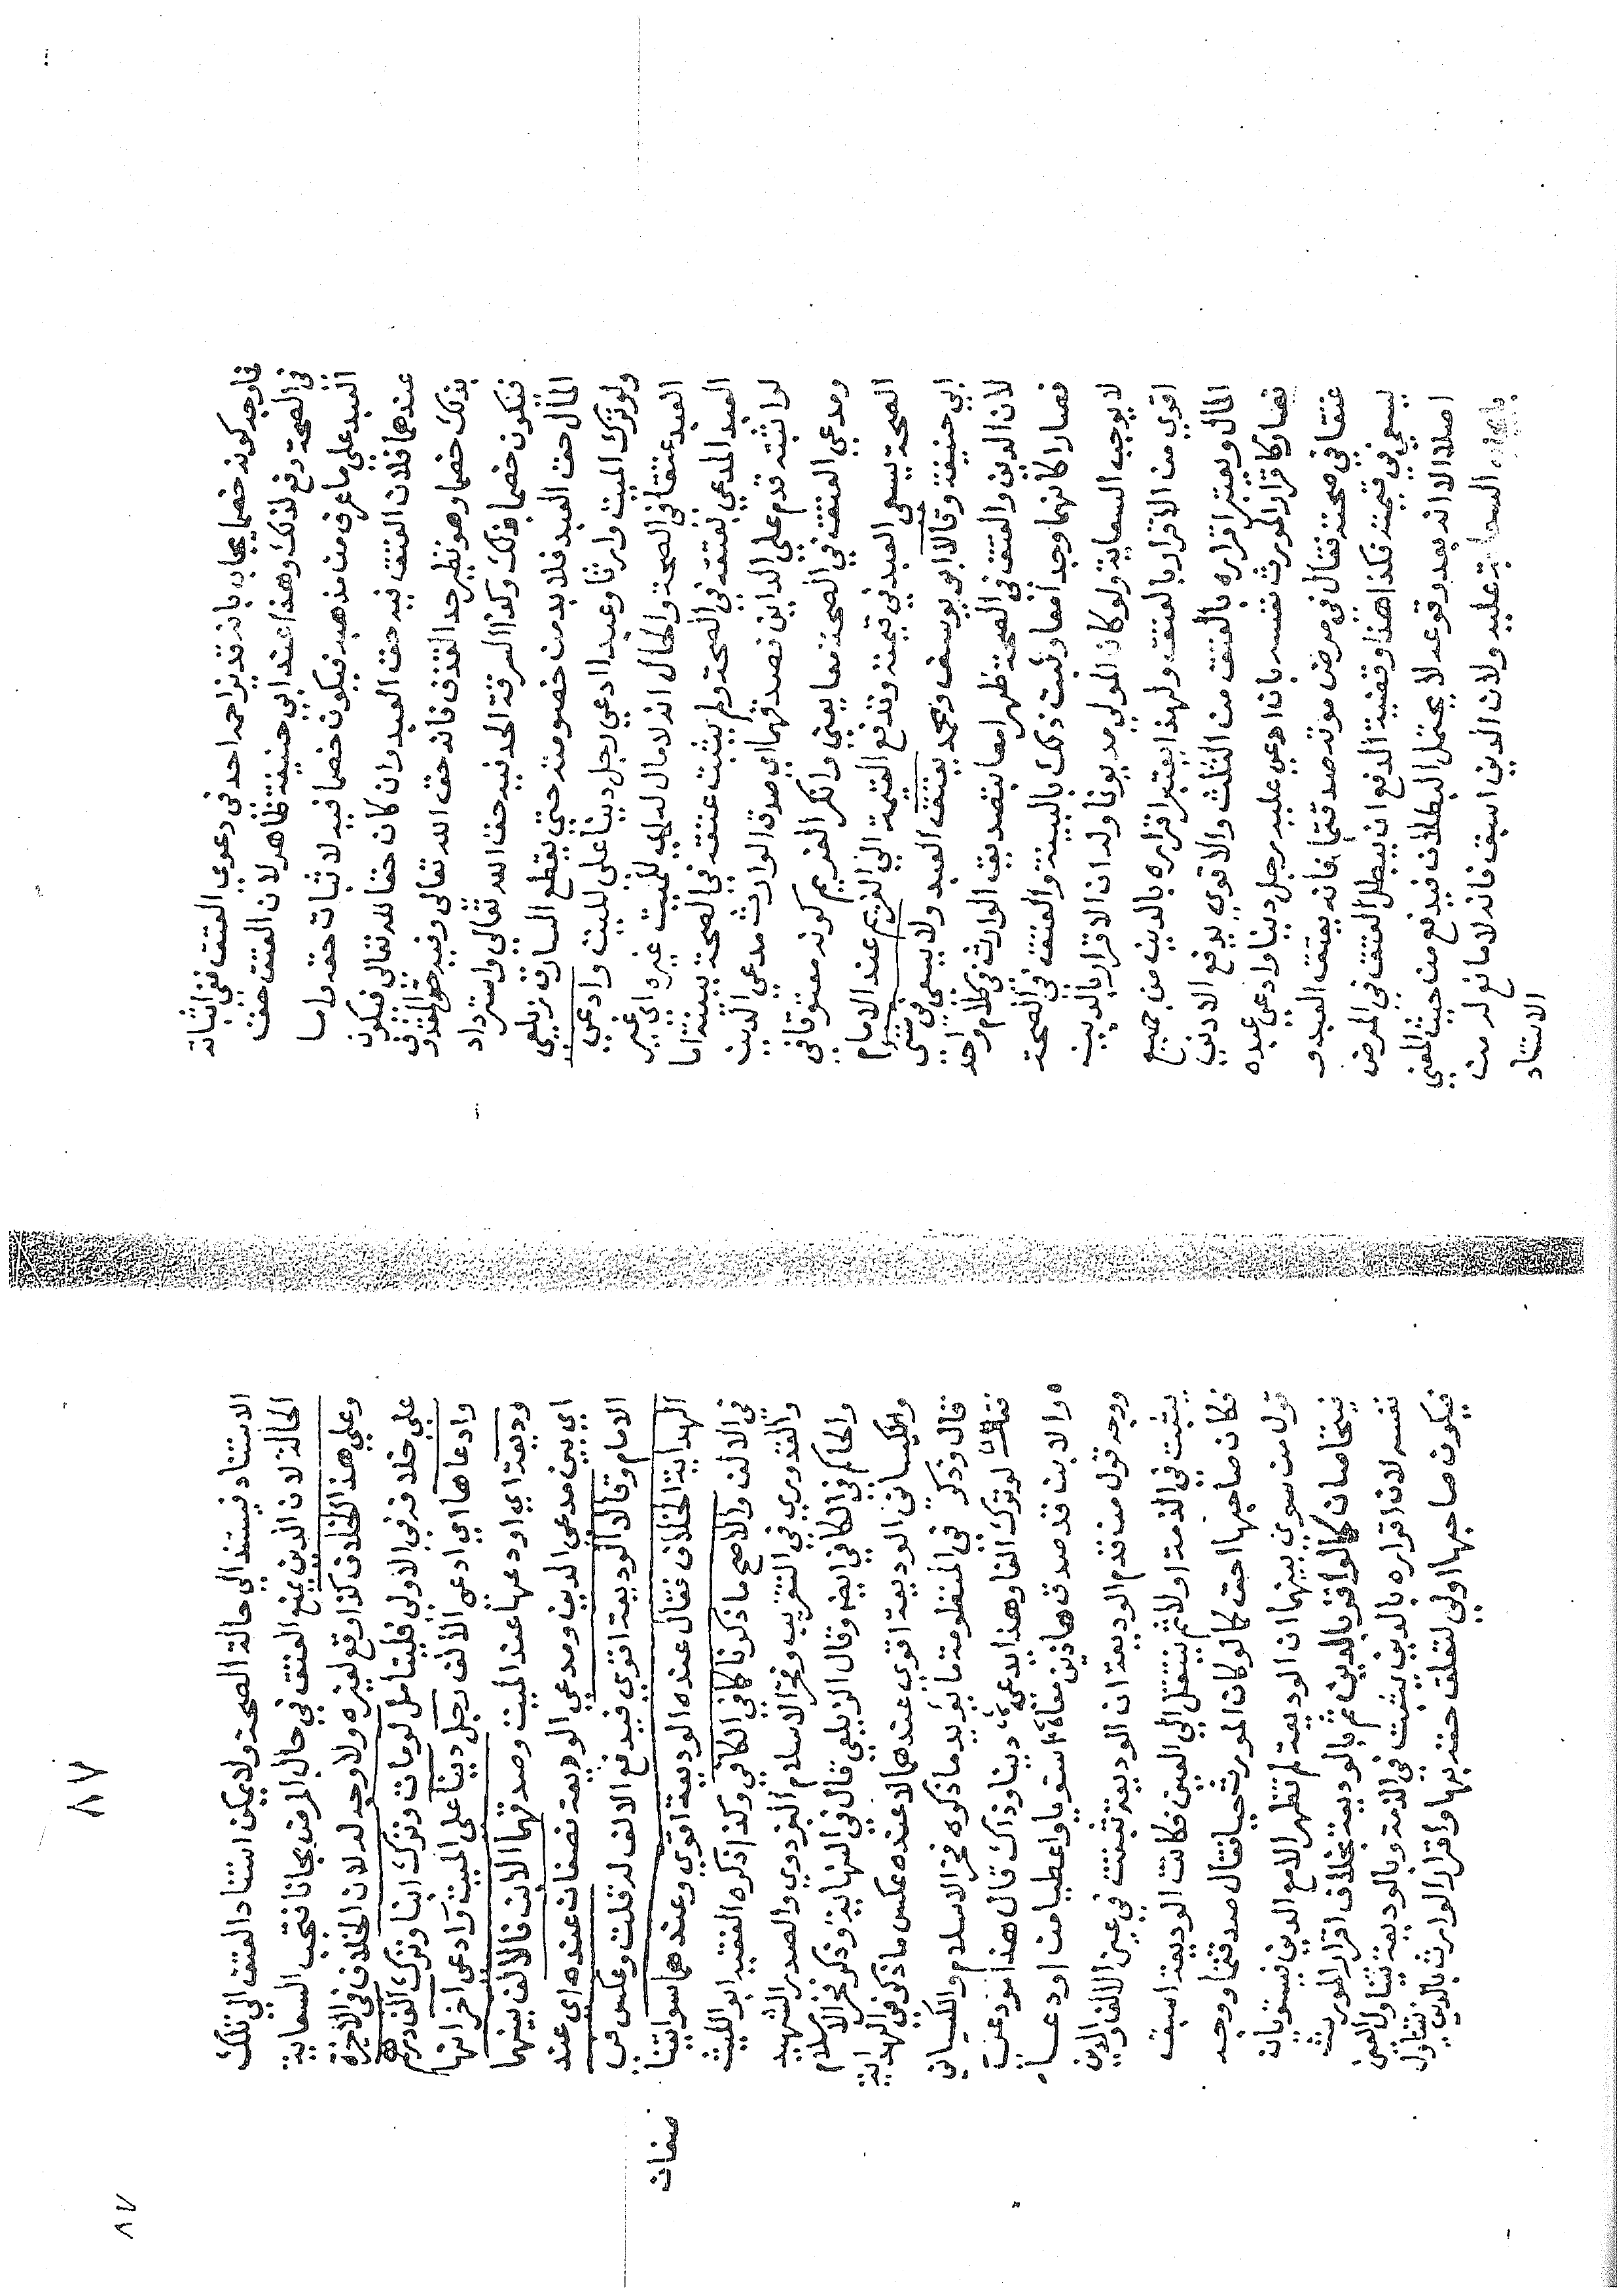 فاوجه كونه خصما يجاب بانه قد يزاحمه احد في دعوى العتق ففي اثباته
في الصحة دفع لذلك وهذا عند ابي حنيفة ظاهر لان العتق حق
العبد على ما عرف من مذهبه فيكون خصما فيه لاثبات حقه واما
عندهما فلان العتق فيه حق العبد وان كان حقا لله تعالى فيكون
بذلك خصما وهو نظير حد القذف فانه حق الله تعالى وفيه حق المقذوف
فيكون خصما فذلك وكذا السرقة الحد فيه حق الله تعالى واسترداد
المال حق العبد فلا بد من خصومته حتى يقطع السارق زيلعي
ولو ترك الميت وارثا وعبدا ادعى رجل دينا على الميت وادعى
العبد عتقا في الصحة والحال انه لا مال له اي للميت غيره اي غير
العبد المدعي لعتقه في الصحة ولم يثبت عتقه في الصحة ببينة اما
لو اثبته قدم على الدين فصدقهما اي صدق الوارث مدعي الدين
ومدعي العتق في الصحة معا يعني وانكر الغريم كونه معتوقا في
الصحة يسعى العبد في قيمته وتدفع القيمة الى الغريم عند الامام
ابي حنيفة وقالا ابو يوسف ومحمد يعتق العبد ولا يسعى في شي
لان الدين والعتق في الصحة ظهرا معا بتصديق الوارث في كلام واحد
فصارا كانهما وجدا معا وثبت ذلك بالبينة والعتق في الصحة
لا يوجب السعاية ولو كان المولى مديونا وله ان الاقرار بالدين
اقوى من الاقرار بالعتق ولهذا يعتبر اقراره بالدين من جميع
المال ويعتبر اقراره بالعتق من الثلث والاقوى يدفع الادنى
فصار كاقرار المورث نفسه بان ادعى عليه رجل دينا وادعى عبده
عتقا في صحته فقال في مرض موته صدقتما فانه يعتق العبد و
يسعى في قيمته فكذا هذا وقضية الدفع ان يبطل العتق في المرض
اصلا الا انه بعد وقوعه لا يحتمل البطلان فيدفع من حيث المعنى
السعاية عليه ولان الدين اسبق فانه لا مانع له من
الاستناد
٨٧
٨٧
الاستناد فيستند الى حالة الصحة ولا يمكن استناد العتق الى تلك
الحالة لان الدين يمنع العتق في حال المرض مجانا فتجب السعاية
وعلى هذا الخلاف كذا وقع لغيره ولا وجه له لان الخلاف في الاخيرة
على خلافه في الاولى فليتامل لو مات وترك ابنا وترك الف درهم
وادعاها اي ادعى الالف رجل دينا على الميت وادعى اخر انها
وديعة اي اودعها عند الميت وصدقهما الابن فالالف بينهما
اي بين مدعي الدين ومدعي الوديعة نصفان عنده اي عند
الامام وقالا الوديعة اقوى فيدفع الالف له قلت وعكس في
الهداية الخلاف فقال عنده الوديعة اقوى وعندهما سواء
في الالف والاصح ما ذكرنا كافي الكافي وكذا ذكره الفقيه ابو الليث
والقدوري في التقريب وفخر الاسلام البزدوي والصدر الشهيد
والحاكم في الكافي ايضا وقال الزيلعي قال في النهاية وذكر فخر الاسلام
والكيساني الوديعة اقوى عندهما لا عنده عكس ما ذكر في الهداية
قال وذكر في المنظومة ما يؤيد ما ذكره فخر الاسلام والكيساني
فقال لو ترك الفا وهذا يدعى دينا وذاك قال هذا مودعي
والابن قد صدق هاذين معا استويا واعطيا من اودعا
ووجه قول من قدم الوديعة ان الوديعة تثبت في عين الالف والدين
يثبت في الذمة اولا ثم ينتقل الى العين فكانت الوديعة اسبق
فكان صاحبها احق كما لو كان المورث حيا فقال صدقتما ووجه
قول من سوى بينهما ان الوديعة لم تظهر الا مع الدين فيستويان
فيتحاصان كما لو اقر بالدين ثم بالوديعة بخلاف اقرار المورث
نفسه لان اقراره بالدين يثبت في الذمة وبالوديعة يتناول العين
فيكون صاحبها اولى لتعلق حقه بها واقرار الوارث بالدين يتناول